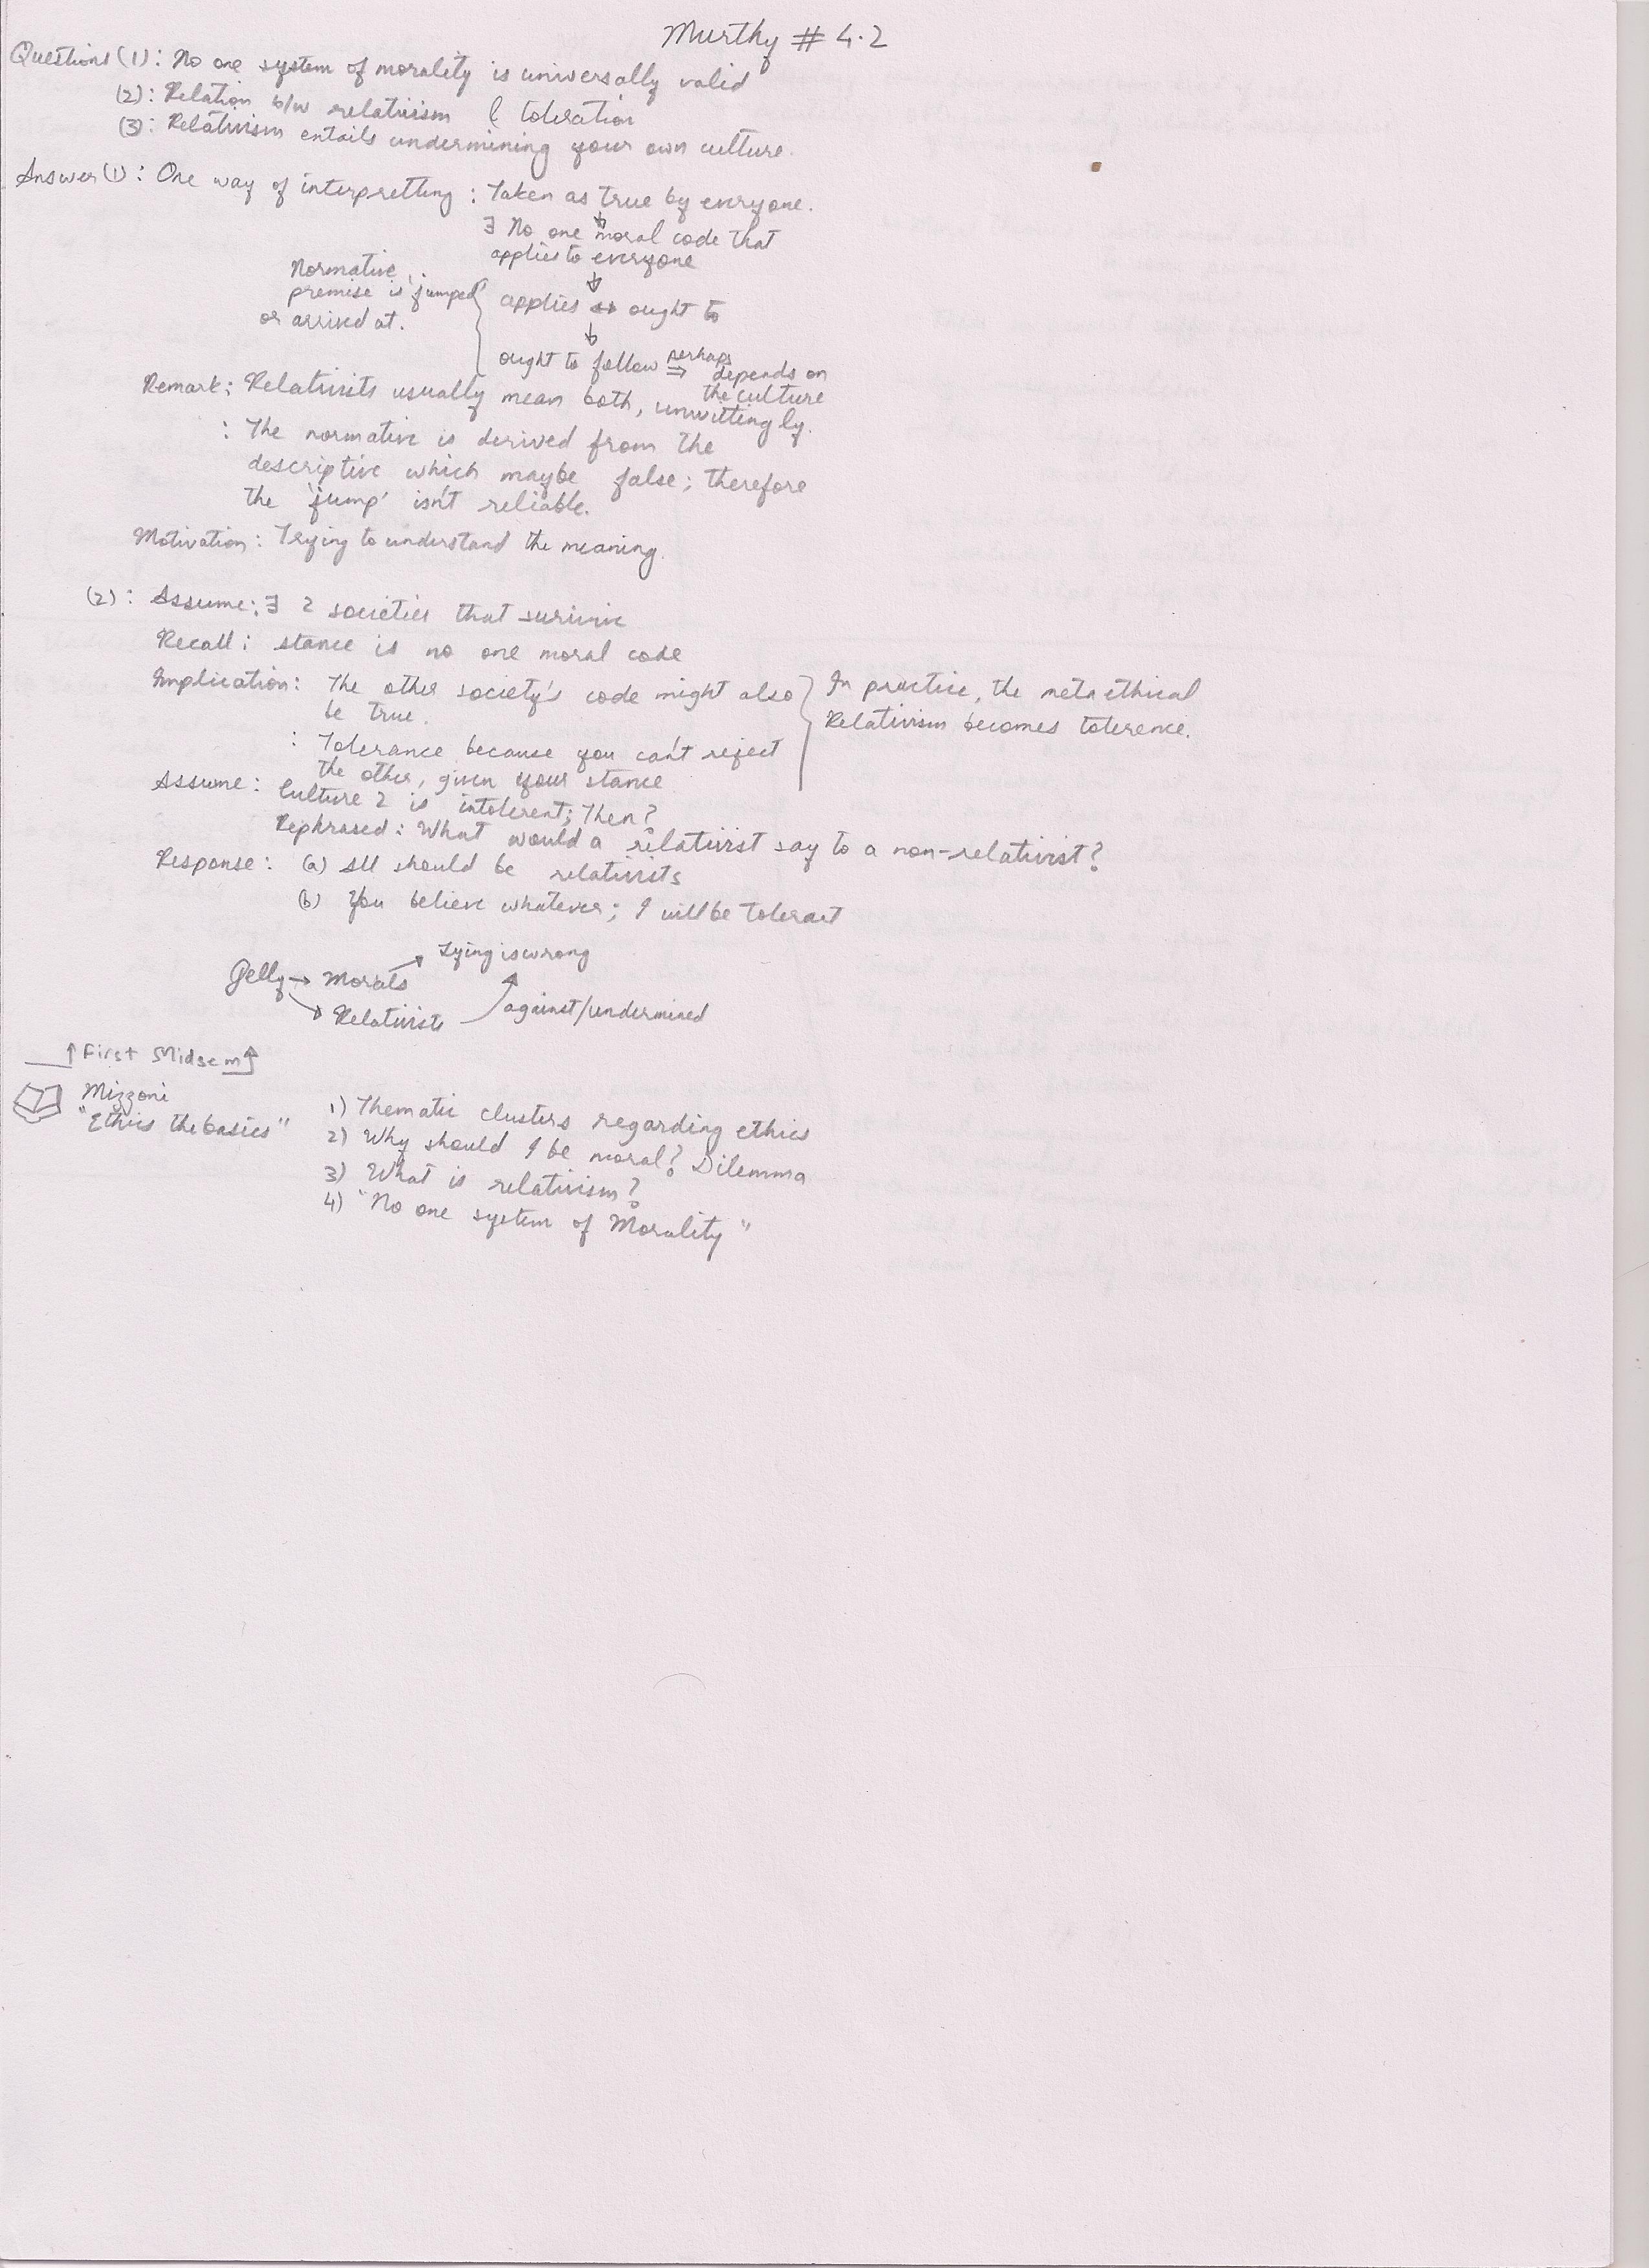 Murthy # 4.2
Questions (1): No one system of morality is universally valid
(2): Relation b/w relativism & toleration
(3): Relativism entails undermining your own culture.
Answer (1): One way of interpretting : Taken as true by everyone.
∃ No one moral code that
applies to everyone
Normative
premise is 'jumped'
or arrived at.
applies ↔ ought to
ought to follow perhaps ⇒ depends on
the culture
Remark: Relativists usually mean both, unwittingly.
: The normative is derived from the
descriptive which maybe false; therefore
the 'jump' isn't reliable.
Motivation: Trying to understand the meaning.
(2): Assume: ∃ 2 societies that survive
Recall: stance is no one moral code
Implication: The other society's code might also
be true.
: Tolerance because you can't reject
the other, given your stance
In practice, the meta ethical
Relativism becomes tolerence.
Assume: Culture 2 is intolerent; Then?
Rephrased: What would a relativist say to a non-relativist?
Response: (a) All should be relativists
(b) You believe whatever; I will be tolerant
Gelly → Morals → Lying is wrong
↘ Relativists against/undermined
↑ First Midsem ↑
Mizzoni
"Ethics the basics"
1) Thematic clusters regarding ethics
2) Why should I be moral? Dilemma
3) What is relativism?
4) "No one system of Morality"